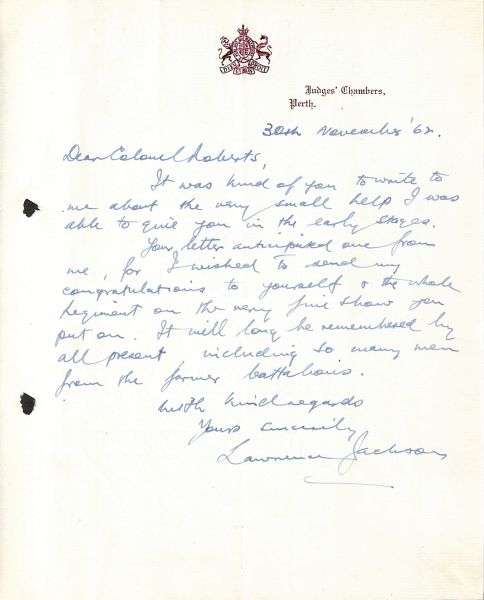 Judges' Chambers,
Perth.
30th November '62.
Dear Colonel Roberts,
It was kind of you to write to
me about the very small help I was
able to give you in the early stages.
Your letter anticipated one from
me, for I wished to send my
congratulations to yourself & the whole
Regiment on the very fine show you
put on. It will long be remembered by
all present including so many men
from the former battalions.
With kind regards
Yours sincerely
Lawrence Jackson